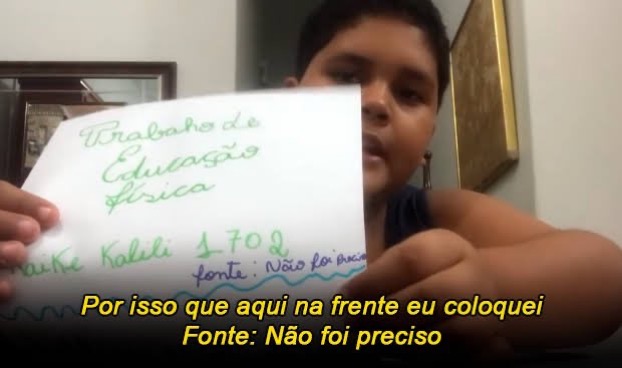 Trabaho de
Educação
física
Kaike Kalili 1.702
fonte: Não foi preciso
Por isso que aqui na frente eu coloquei
Fonte: Não foi preciso